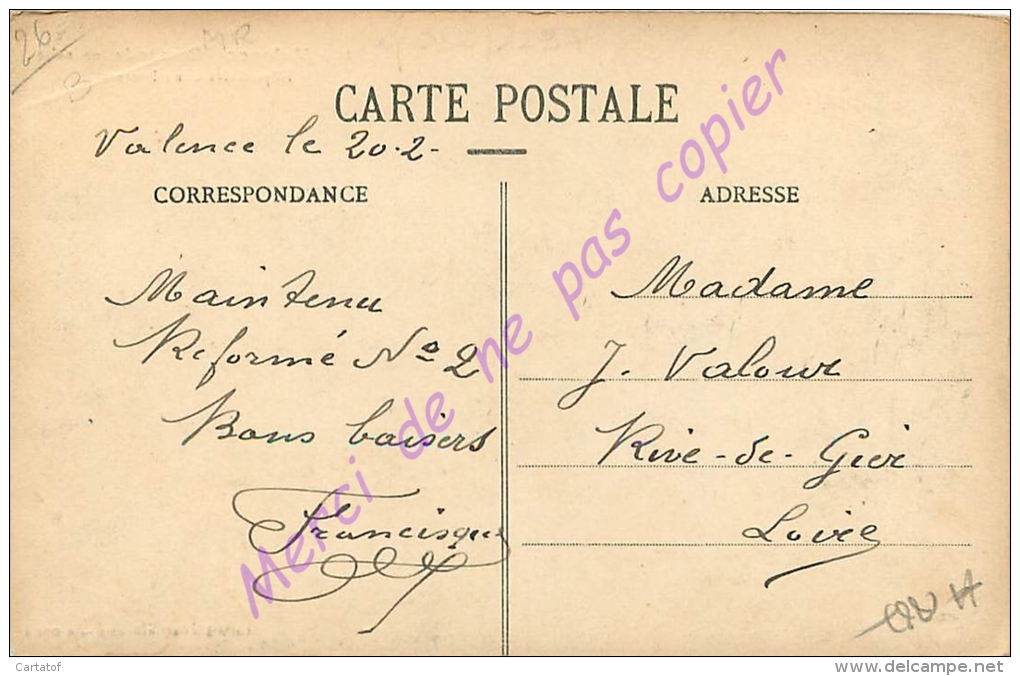 26
B
MR
CARTE POSTALE
Valence le 20.2-
CORRESPONDANCE
Maintenu
Reformé No 2
Bons baisers
Francisque
ADRESSE
Madame
J. Valour
Rive-de-Gier
Loire
Merci de ne pas copier
Cartatof
www.delcampe.net